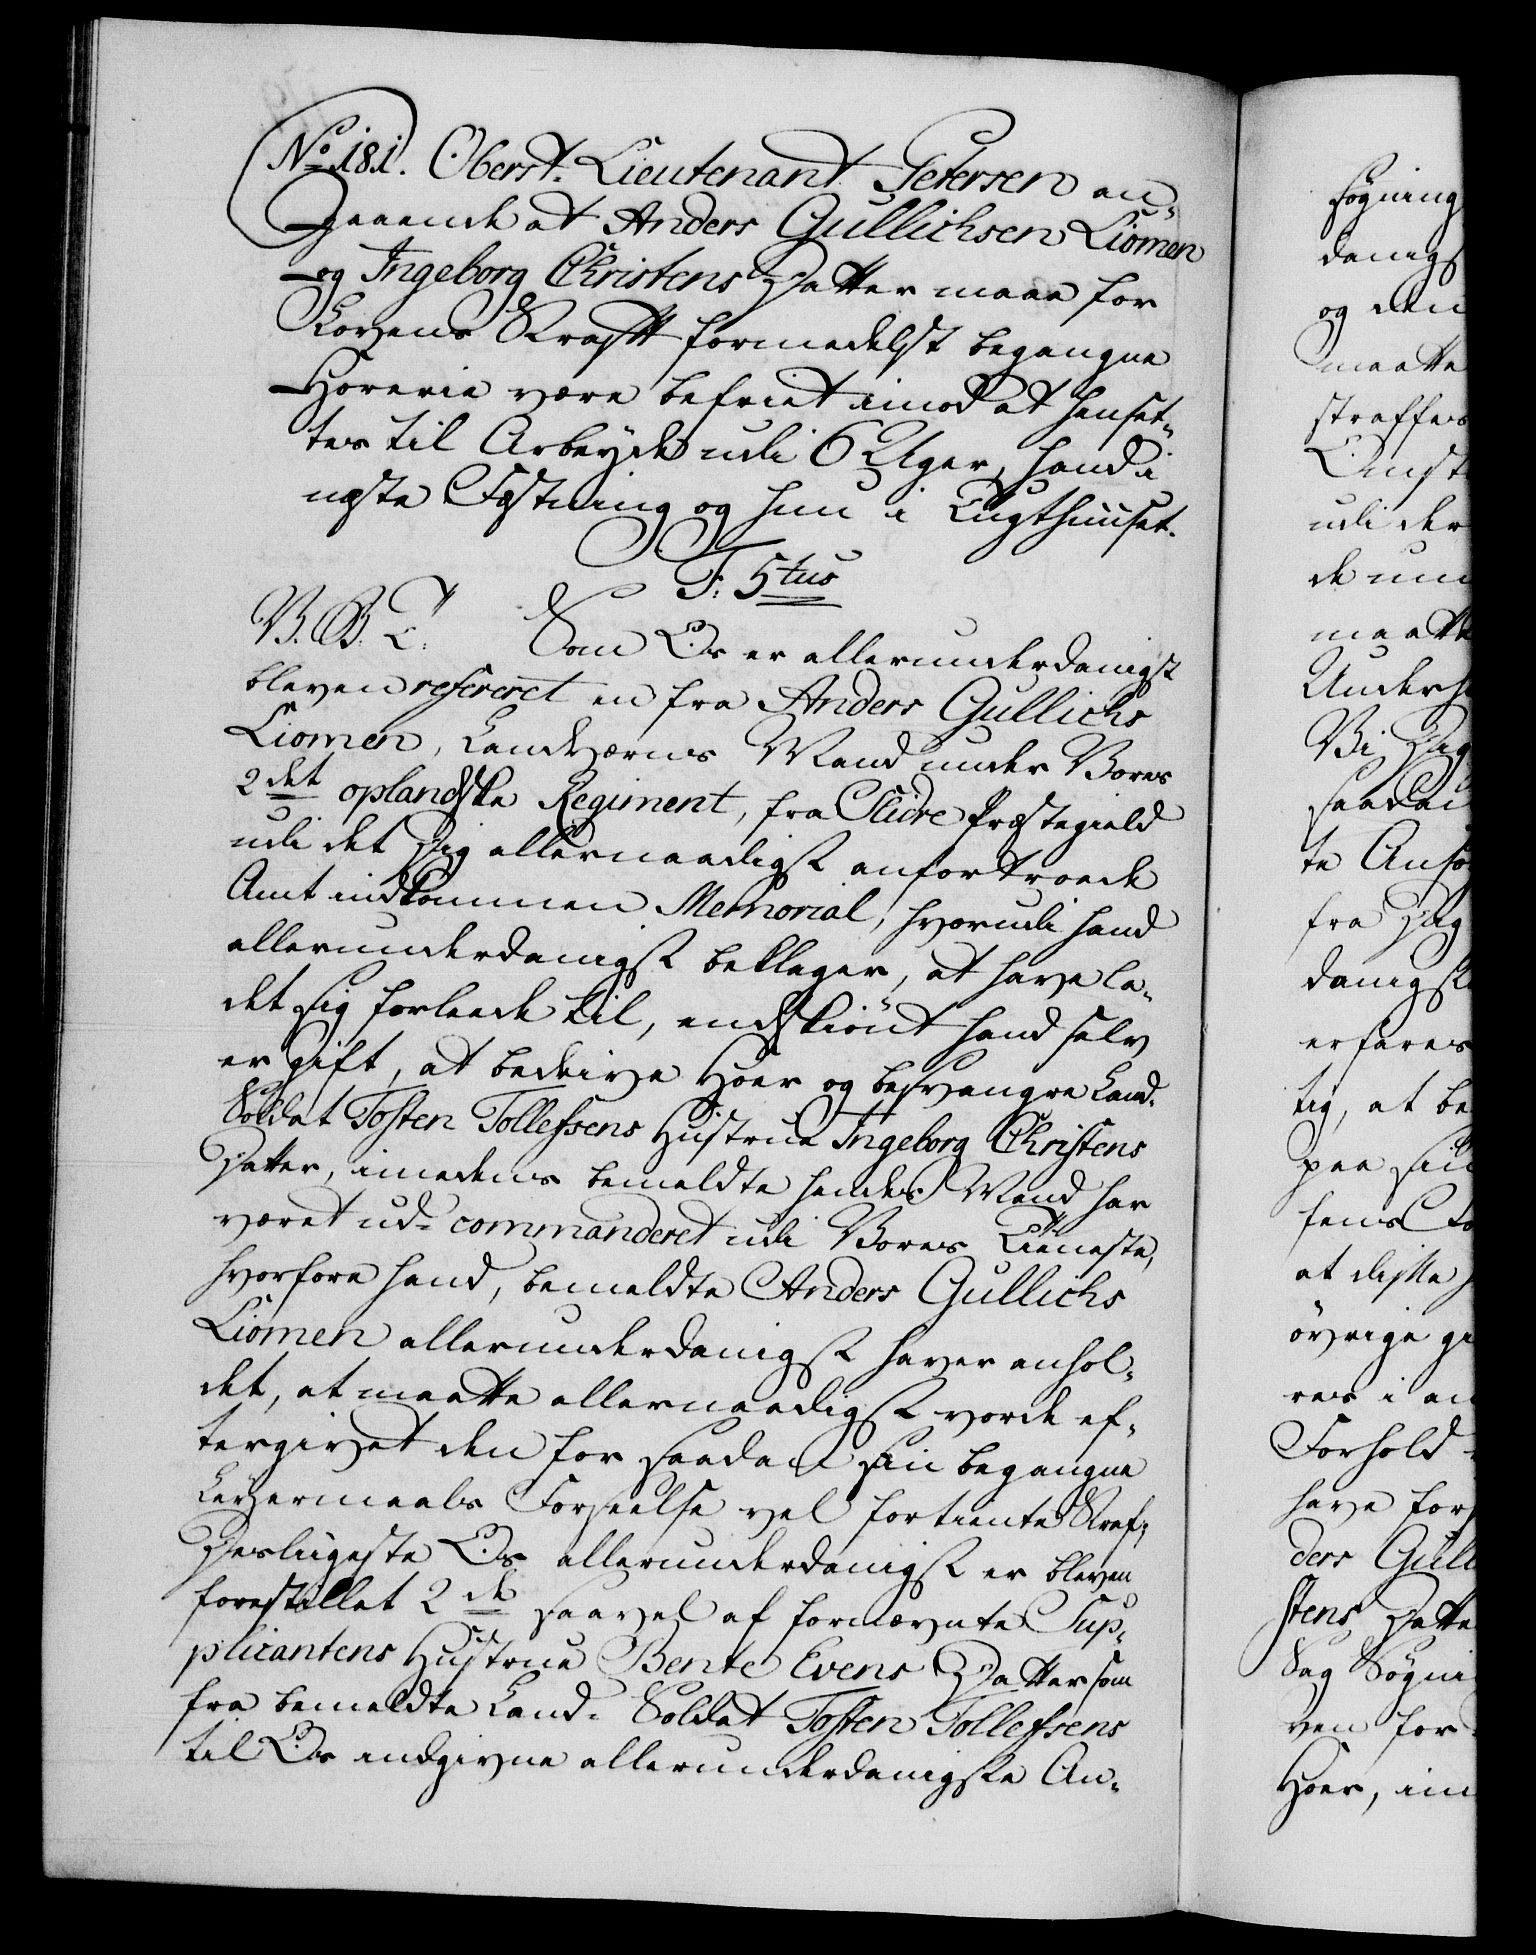 No 181. Oberst-Lieutenant Petersen an-
gaaende at Anders Gullichsen Liomen
og Ingeborg Christens Datter maae for
Lovens Straff formedelst begangne
Horerie være befriet imod at hensæt-
tes til Arbeyde udi 6 Uger, hand i
næste Fæstning og hun i Tugthuuset.
F. 5tus
V. G. T. Som Os er allerunderdanigst
bleven refereret en fra Anders Gullichs
Liomen, Landværns Mand under Vores
2det oplandske Regiment, fra Slidre Præstegield
udi det Dig allernaadigst anfortroede
Amt indkommen Memorial, hvorudi hand
allerunderdanigst beklager, at have la-
det sig forleede til, endskiönt hand selv
er gift, at bedrive Hoer og besvangre Land-
Soldat Tosten Tollefsens Hustrue Ingeborg Christens
Datter, imedens bemeldte hendes Mand har
været ud-commanderet udi Vores Tieneste,
hvorfore hand, bemeldte Anders Gullichs
Liomen allerunderdanigst haver anhol-
det, at maatte allernaadigst vorde ef-
tergivet den for saadan sin begangne
Leyermaals Forseelse vel fortiente Straf;
Desligeste Os allerunderdanigst er bleven
forestillet 2de saavel af formævnte Sup-
plicantens Hustrue Bente Evens Datter som
fra bemeldte Land-Soldat Tosten Tollefsens
til Os indgivne allerunderdanigste An-
søgning
danigs
og den
maatte
straffes
Omst
udi der
de un
maatte
Underh
Vi Dig
saadan
te Ansö
fra Dig
danigst
erfares
tig, at be
paa sin
fens
at disse
övrige gi
res i an
Forhold
have for
ders Gull
stens Datte
Sag Sögni
ven for
Hoer, im